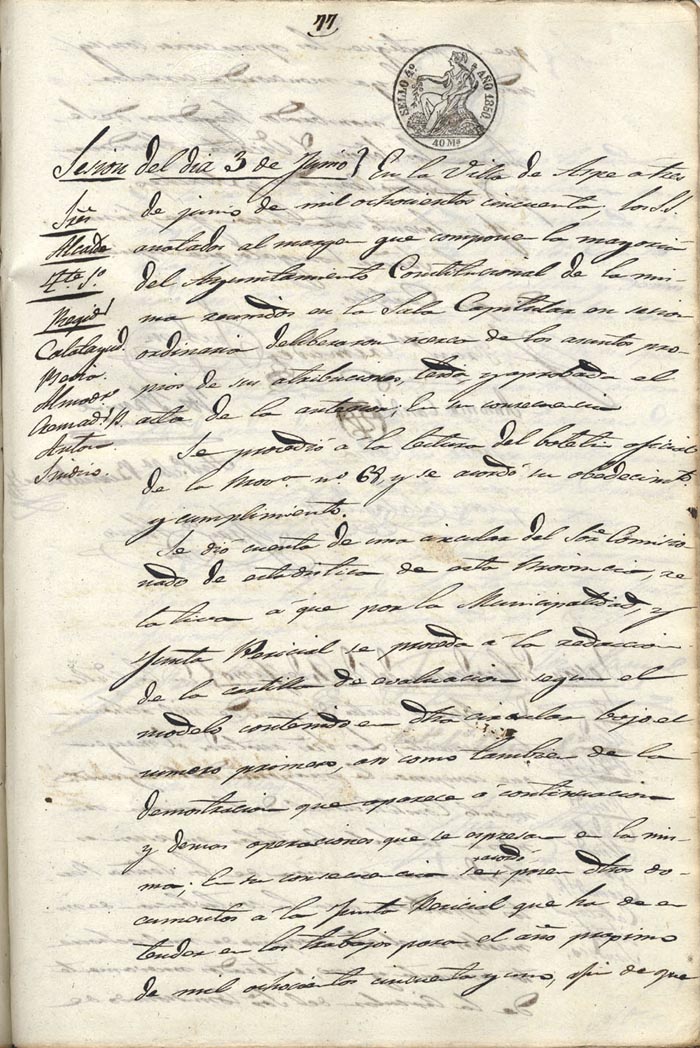 77
SELLO 4º AÑO 1850.
40 Ms
Sesion del dia 3 de Junio} En la Villa de Aspe a tres
de junio de mil ochocientos cincuenta, los SS.
anotados al margen que compone la mayoria
del Ayuntamiento Constitucional de la mis
ma reunidos en la Sala Capitular en sesion
ordinaria deliberaron acerca de los asuntos pro
pios de sus atribuciones, leida y aprobada el
acta de la anterior; En su consecuencia
Sres
Alcalde
4te 1º
Regid.s
Calatayud.
Mexia.
Almodr.
Cremad.s
Anton
Sindico.
Se procedió á la lectura del boletin oficial
de la Prova nº 68, y se acordó su obedecimto
y cumplimiento.
Se dio cuenta de una circular del Sor Comisio
nado de estadistica de esta Provincia, re
lativa á que por la Municipalidad, y
Junta Pericial se proceda á la redaccion
de la cartilla de evaluacion segun el
modelo contenido en dha circular bajo el
numero primero, asi como tambien de la
demostracion que aparece á continuacion
y demas operaciones que se espresan en la mis
ma; En su consecuencia se acordó pasen dhos do
cumentos á la Junta Pericial que ha de en
tender en los trabajos para el año proximo
de mil ochocientos cincuenta y uno, afin de que